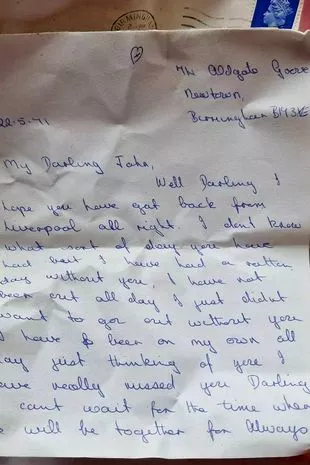 BIRMING
Aldgate Grove
Newtown,
Birmingham B19 3XE
22-5-71
My Darling John,
Well Darling I
hope you have got back from
Liverpool all right. I don't know
what sort of day you have
had but I have had a rotten
day without you. I have not
been out all day I just didnt
want to gor out without you
I have been on my own all
day just thinking of you I
have really missed you Darling
I cant wait for the time when
we will be together for Always